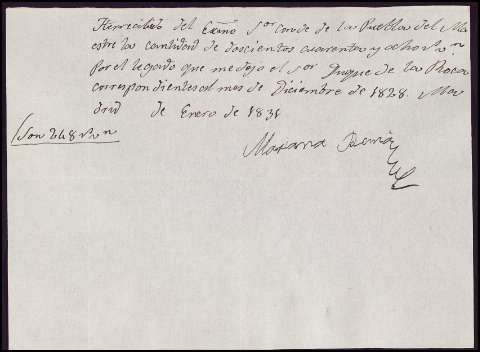 He recibido del Exmo Sor Conde de la Puebla del Ma
estre la cantidad de doscientos cuarenta y ocho rs vn
Por el legado que me dejo el Sor Duque de la Roca
correspondientes al mes de Diciembre de 1828. Ma
drid de Enero de 1831
Son 248 rs vn
Mariana